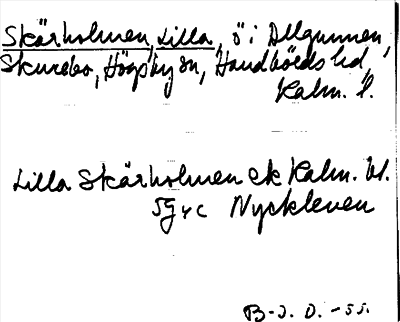 Skärholmen, Lilla, ö i Allgunnen,
Skurebo, Högsby sn, Handbörds hd,
Kalm. l.
Lilla Skärholmen ek Kalm. bl.
5G4c Nyckleven
B-J. D. -55.